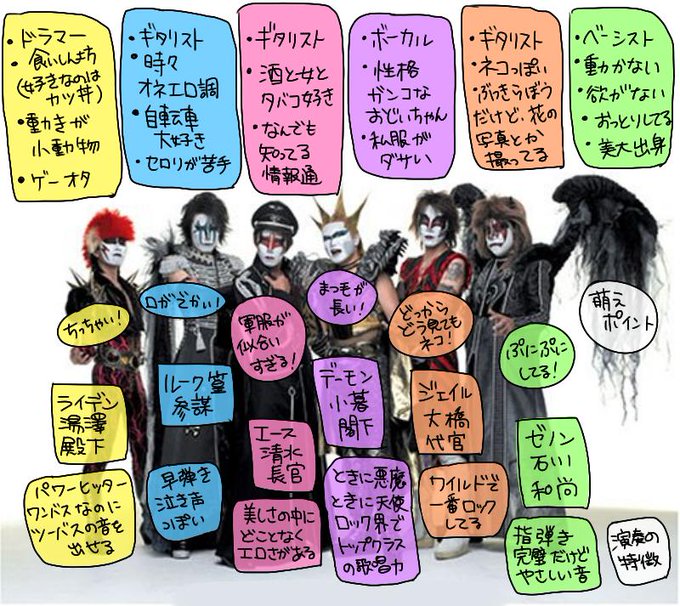 ・ドラマー
・食いしん坊
(好きなのは
カツ丼)
・動きが
小動物
・ゲーオタ
・ギタリスト
・時々
オネエ口調
・自転車
大好き
・セロリが苦手
・ギタリスト
・酒と女と
タバコ好き
・なんでも
知ってる
情報通
・ボーカル
・性格
ガンコな
おじいちゃん
・私服が
ダサい
・ギタリスト
・ネコっぽい
・ぶっきらぼう
だけど、花の
写真とか
撮ってる
・ベーシスト
・動かない
・欲がない
・おっとりしてる
・美大出身
ちっちゃい!
口がでかい!
軍服が
似合い
すぎる!
まつ毛が
長い!
どっから
どう見ても
ネコ!
ぷにぷに
してる!
萌え
ポイント
ライデン
湯澤
殿下
ルーク篁
参謀
エース
清水
長官
デーモン
小暮
閣下
ジェイル
大橋
代官
ゼノン
石川
和尚
パワーヒッター
ワンバスなのに
ツーバスの音を
出せる
早弾き
泣き声
っぽい
美しさの中に
どことなく
エロさがある
ときに悪魔
ときに天使
ロック界で
トップクラス
の歌唱力
ワイルドで
一番ロック
してる
指弾き
完璧だけど
やさしい音
演奏の
特徴